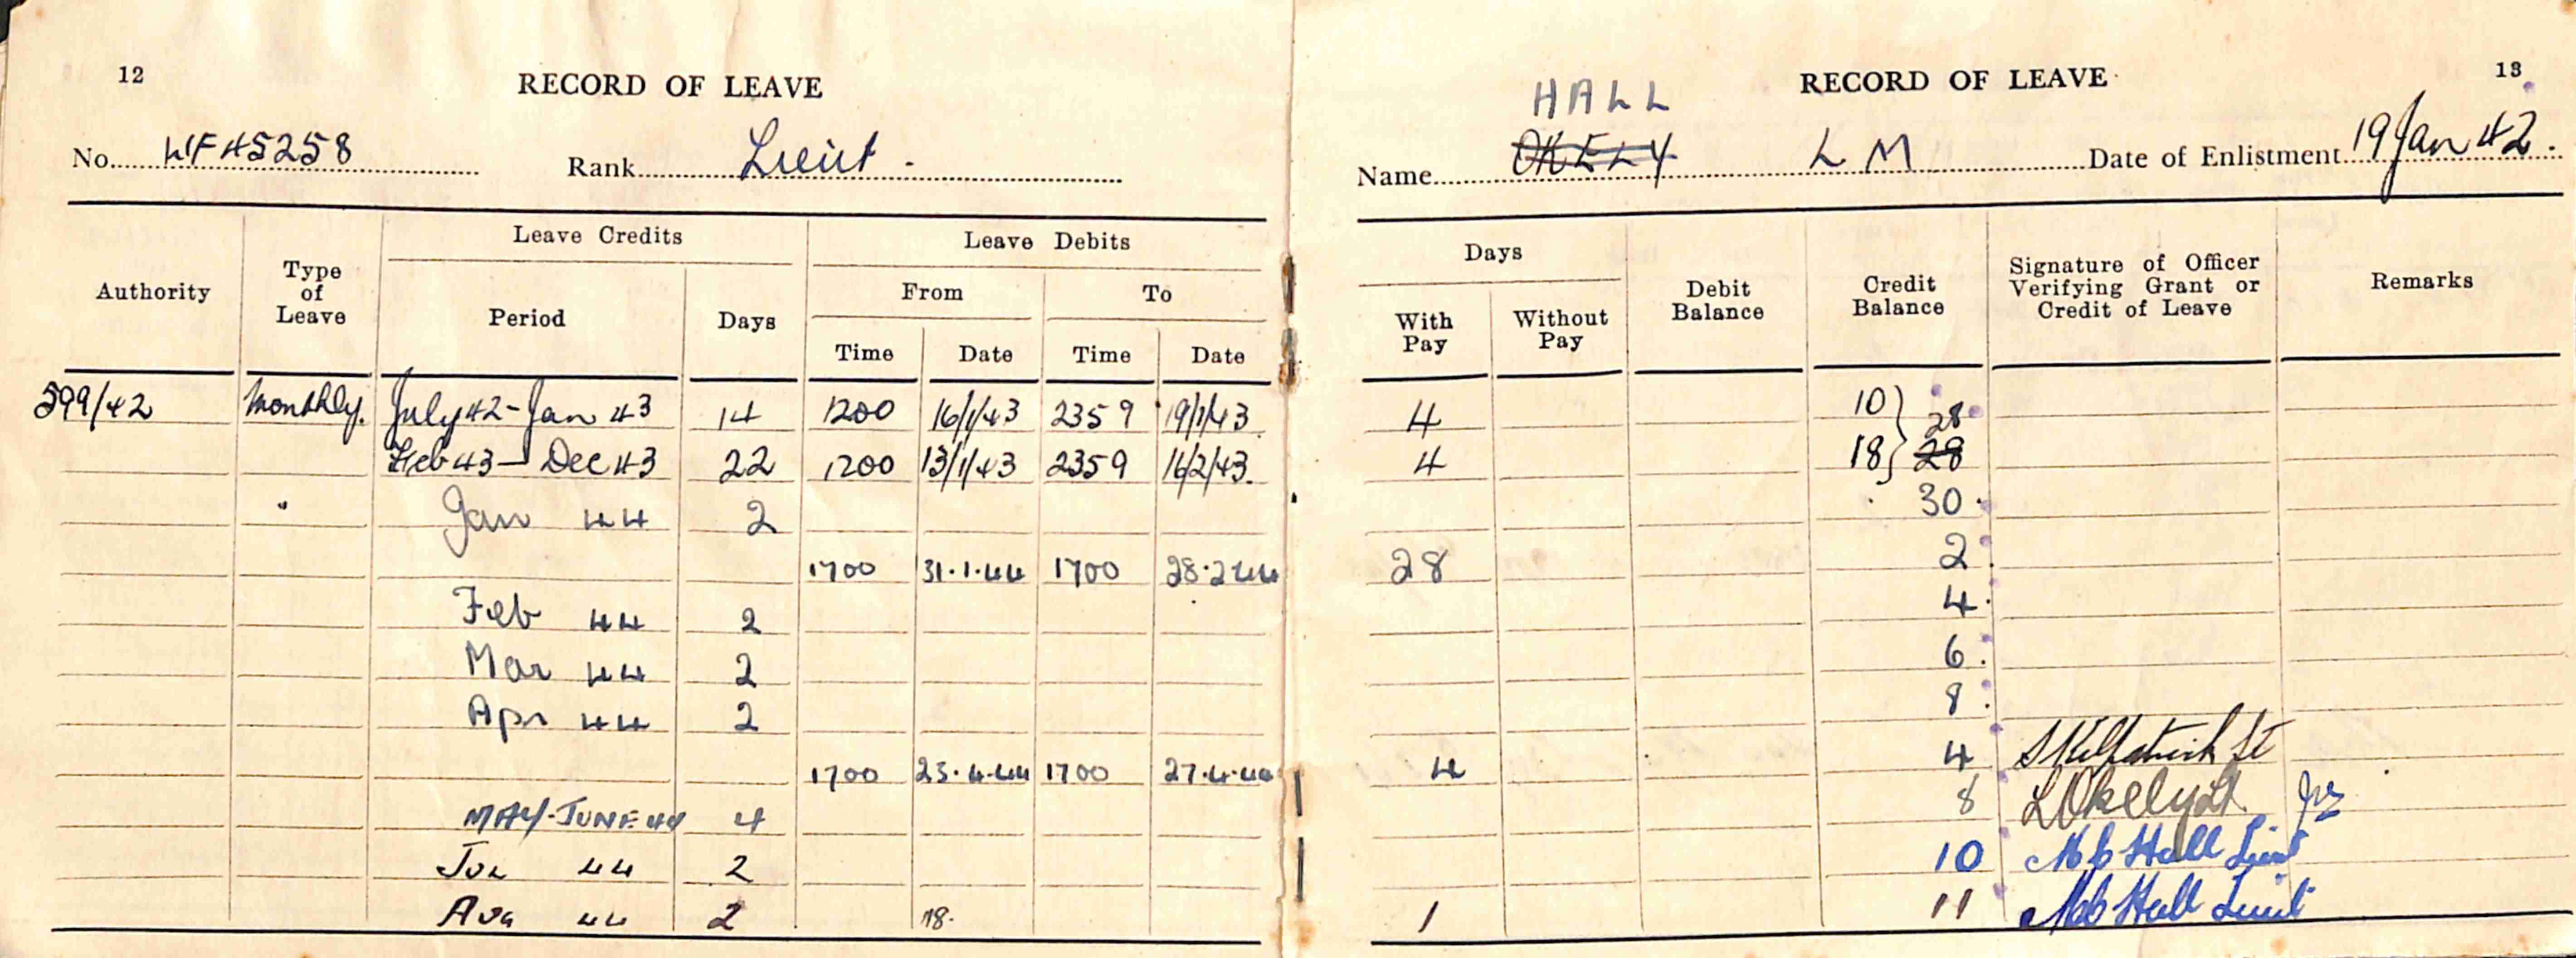 12
RECORD OF LEAVE
No. WF45258 Rank Lieut.
Authority Type of Leave Leave Credits Leave Debits
Period Days From To
Time Date Time Date
399/42 Monthly. July 42 - Jan 43 14 1200 16/1/43 2359 19/1/43
Feb 43 - Dec 43 22 1200 13/1/43 2359 16/2/43.
" Jan 44 2
1700 31.1.44 1700 28.2.44
Feb 44 2
Mar 44 2
Apr 44 2
1700 23.4.44 1700 27.4.44
MAY-JUNE 44 4
JUL 44 2
AUG 44 2 18.
13
RECORD OF LEAVE
HALL
Name OKELY L M Date of Enlistment 19 Jan 42.
Days Debit Balance Credit Balance Signature of Officer Verifying Grant or Credit of Leave Remarks
With Pay Without Pay
4 10 } 28
4 18 } 28
30
28 2
4
6
8
4 4 S Kilpatrick Lt
8 L Okely Lt
10 Hall Lieut
1 11 Hall Lieut